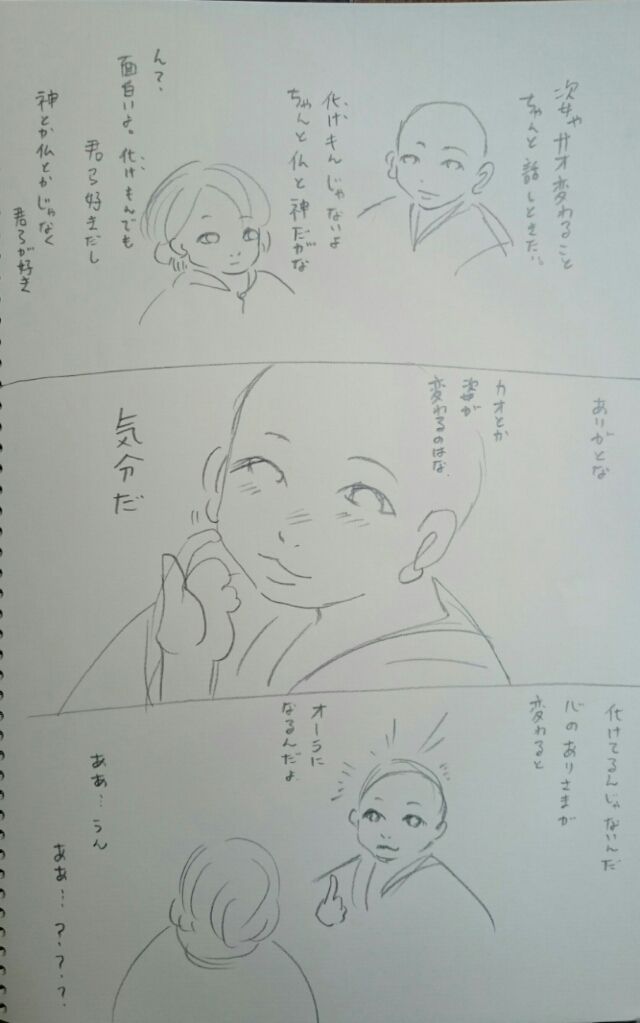 次女や
カオ変わること
ちゃんと話しときたい。
化けもんじゃないよ
ちゃんと仏と神だがな
ん?
面白いよ。化けもんでも
君ら好きだし
神とか仏とかじゃなく
君らが好き
ありがとな
カオとか
姿が
変わるのはな
気分だ
化けてるんじゃないんだ
心のありさまが
変わると
オーラに
なるんだよ
ああ…うん
ああ…???